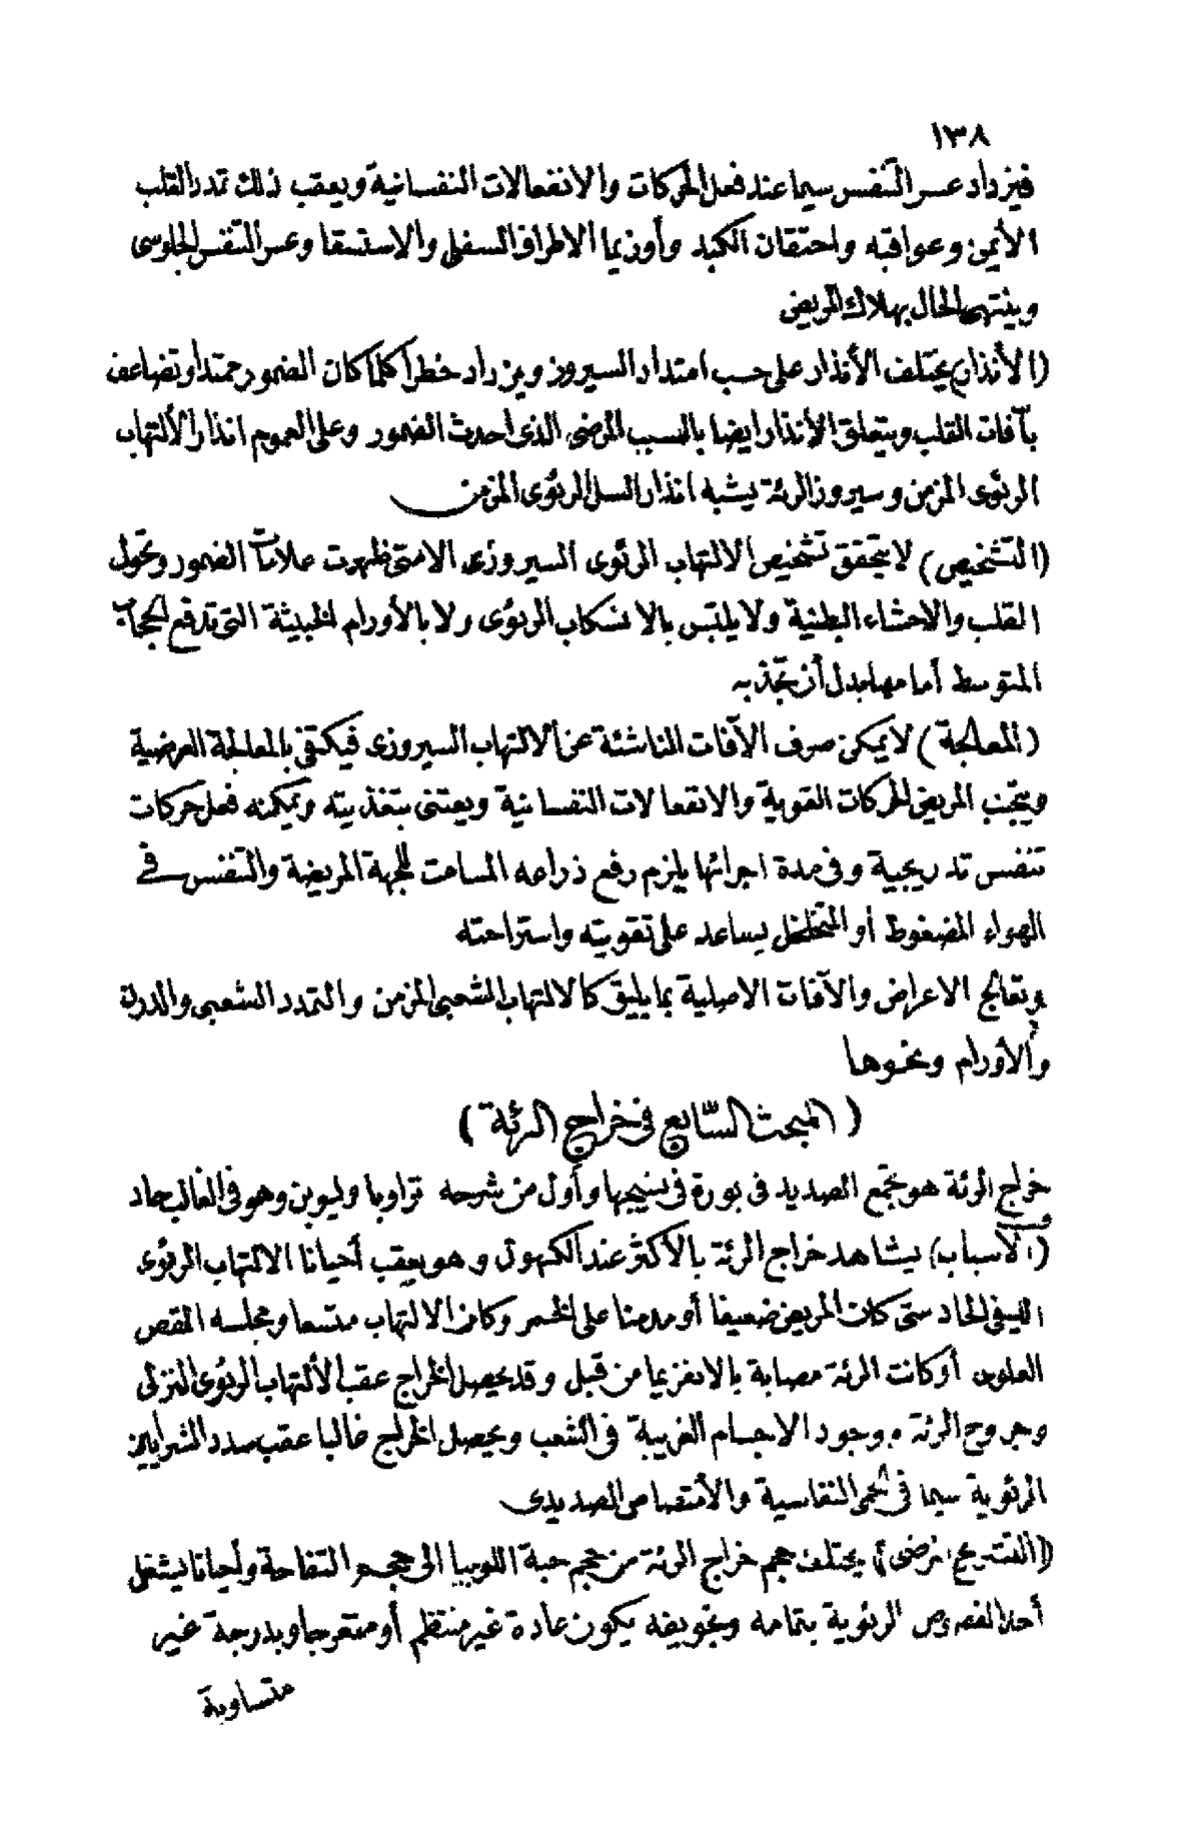 ١٣٨
فيزداد عسر التنفس سيما عند فعل الحركات والانفعالات النفسانية ويعقب ذلك تمدد القلب
الأيمن وعواقبه واحتقان الكبد وأوزيما الاطراف السفلى والاستسقا وعسر التنفس الجلوسى
وينتهى الحال بهلاك المريض
(الأنذار) يختلف الأنذار على حسب امتداد السيروز ويزداد خطرا كلما كان الضمور ممتدا وتضاعف
بآفات القلب ويتعلق الأنذار ايضا بالسبب المرضى الذى احدث الضمور وعلى العموم انذار الألتهاب
الرئوى المزمن وسيروز الرئة يشبه انذار السل الرئوى المزمن
(التشخيص) لا يتحقق تشخيص الالتهاب الرئوى السيروزى الا متى ظهرت علامات الضمور وتحول
القلب والاحشاء البطنية ولا يلتبس بالانسكاب الرئوى ولا بالأورام الخبيثة التى تدفع الحجاب
المتوسط أمامها بدل أن تجذبه
(المعالجة) لا يمكن صرف الآفات الناشئة عن الالتهاب السيروزى فيكتفى بالمعالجة العرضية
ويتجنب المريض الحركات القوية والانفعالات النفسانية ويعتنى بتغذيته ويمكنه فعل حركات
تنفس تدريجية وفى مدة اجرائها يلزم رفع ذراعه المسامت للجهة المريضة والتنفس فى
الهواء المضغوط أو المتخلخل يساعد على تقويته واستراحته
وتعالج الاعراض والآفات الاصلية بما يليق كالالتهاب الشعبى المزمن والتمدد الشعبى والدرن
والأورام ونحوها
(المبحث السابع فى خراج الرئة)
خراج الرئة هو تجمع الصديد فى بورة فى نسيجها وأول من شرحه تراوبا وليوبن وهو فى الغالب حاد
(الأسباب) يشاهد خراج الرئة بالأكثر عند الكهول وهو يعقب أحيانا الالتهاب الرئوى
الليفى الحاد متى كان المريض ضعيفا أو مدمنا على الخمر وكان الالتهاب متسعا ومجلسه الفص
العلوى أو كانت الرئة مصابة بالانفزيما من قبل وقد يحصل الخراج عقب الألتهاب الرئوى النزلى
وجروح الرئة ووجود الاجسام الغريبة فى الشعب ويحصل الخراج غالبا عقب سدد الشرايين
الرئوية سيما فى الحمى النفاسية والأمتصاص الصديدى
(التشريح المرضى) يختلف حجم خراج الرئة من حجم حبة اللوبيا الى حجم التفاحة وأحيانا يشغل
أحد الفصوص الرئوية بتمامه وتجويفه يكون عادة غير منتظم أو متعرجا وبدرجة غير
متساوية